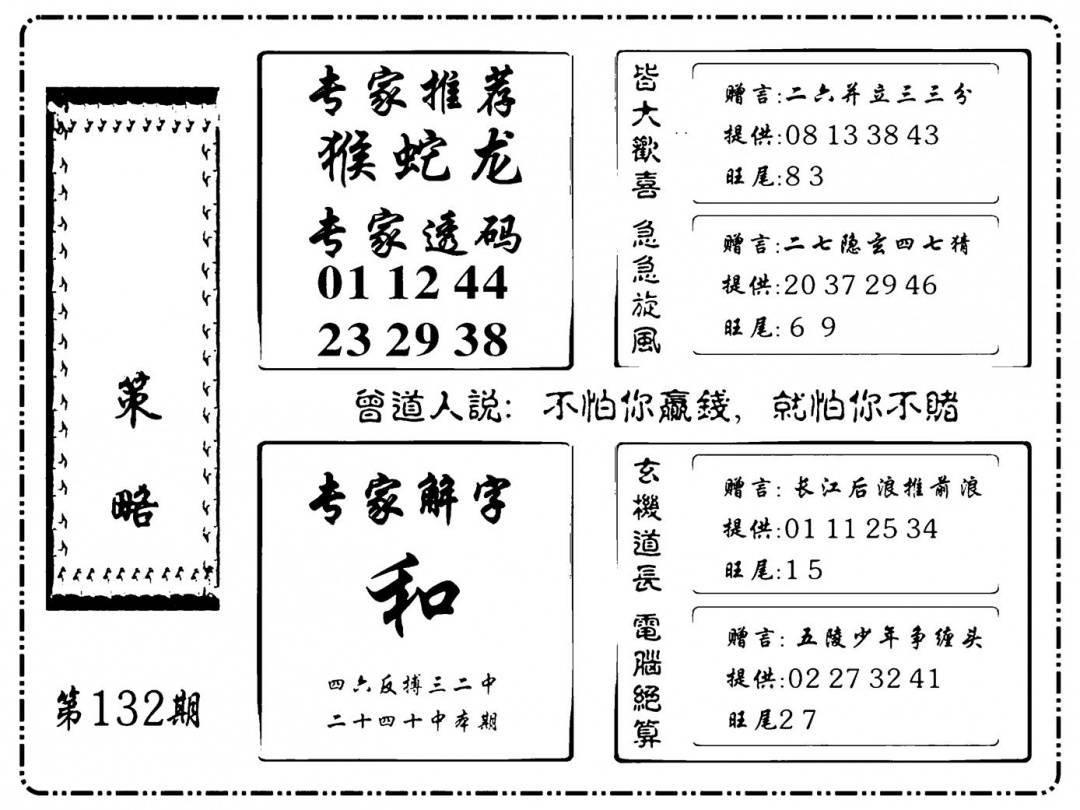 策略
第132期
专家推荐
猴蛇龙
专家透码
01 12 44
23 29 38
皆大歡喜
赠言:二六并立三三分
提供:08 13 38 43
旺尾:8 3
急急旋風
赠言:二七隐玄四七猜
提供:20 37 29 46
旺尾:6 9
曾道人説: 不怕你贏錢, 就怕你不賭
专家解字
和
四六反搏三二中
二十四十中本期
玄機道長
赠言: 长江后浪推前浪
提供:01 11 25 34
旺尾:1 5
電腦絕算
赠言: 五陵少年争缠头
提供:02 27 32 41
旺尾2 7